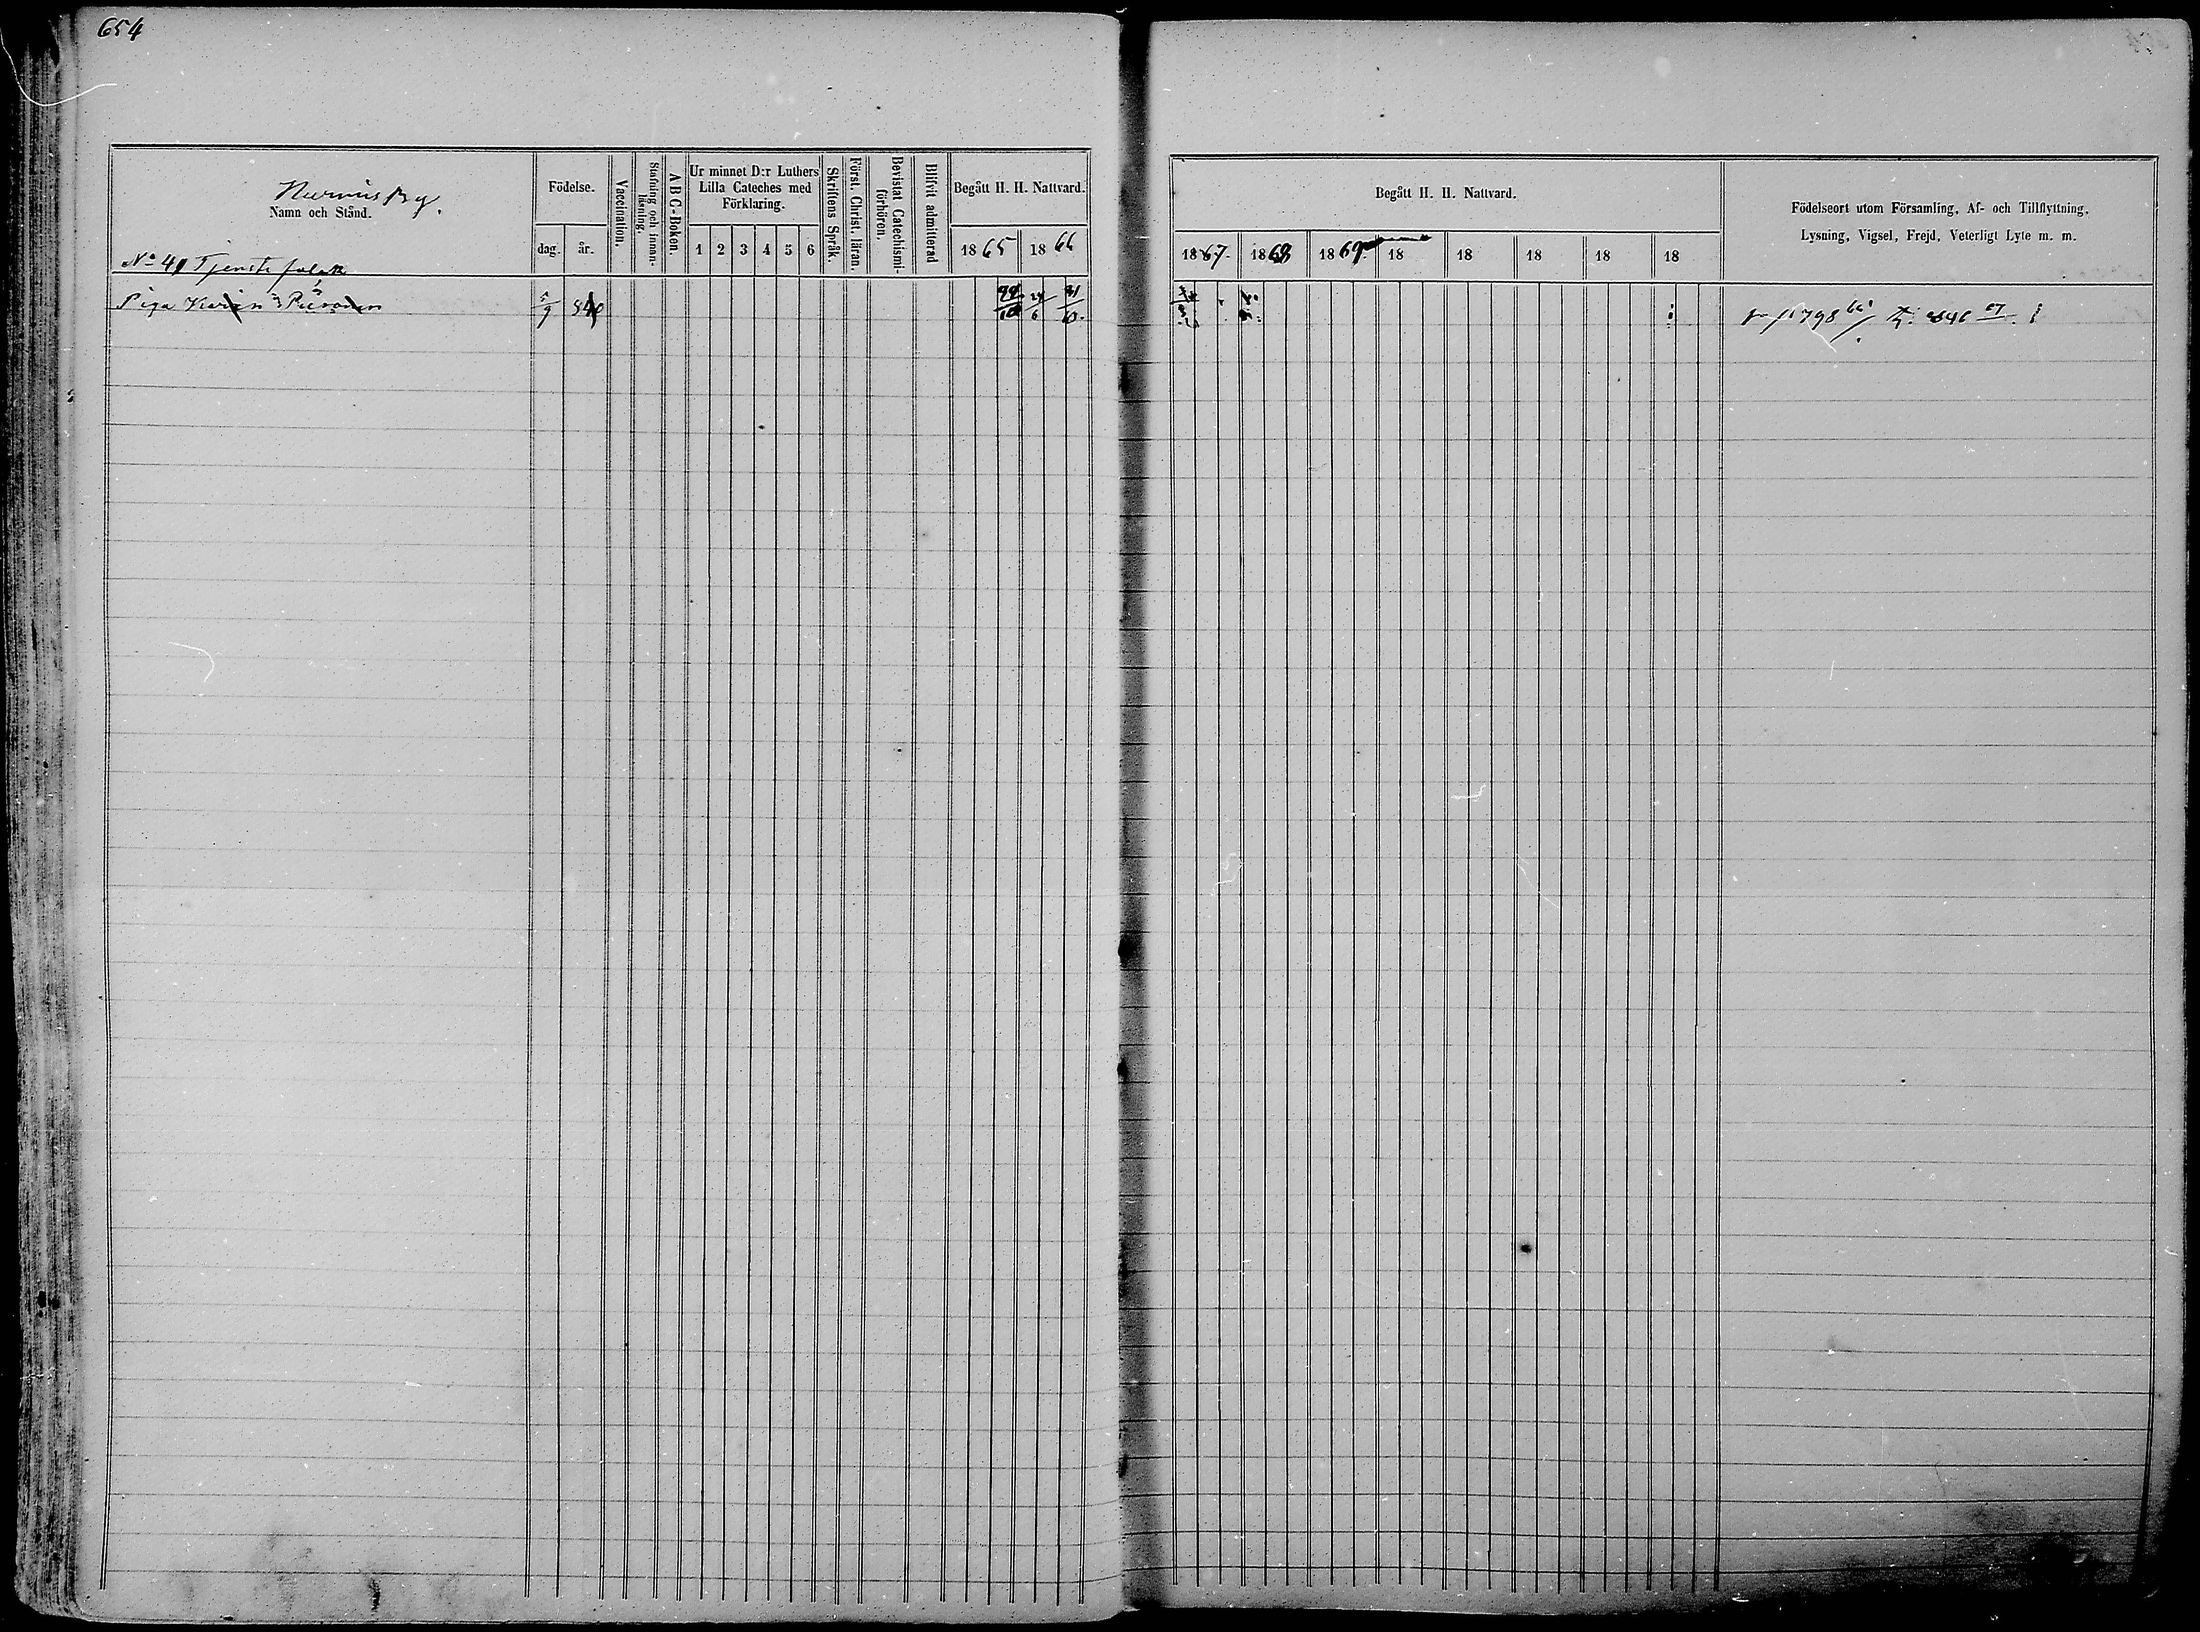 654
Namn och Stånd.
Födelse.
dag. år.
Vaccination.
Stafning och innan-
läsning.
A B C-Boken.
Ur minnet D:r Luthers
Lilla Cateches med
Förklaring.
1 2 3 4 5 6
Skriftens Språk.
Först. Christ. läran.
Bevistat Catechismi-
förhören.
Blifvit admitterad
Begått H. H. Nattvard.
1865 1866
Begått H. H. Nattvard.
1867. 1868 1869 18 18 18 18 18
Födelseort utom Församling, Af- och Tillflyttning,
Lysning, Vigsel, Frejd, Veterligt Lyte m. m.
Tjenste folk
Piga